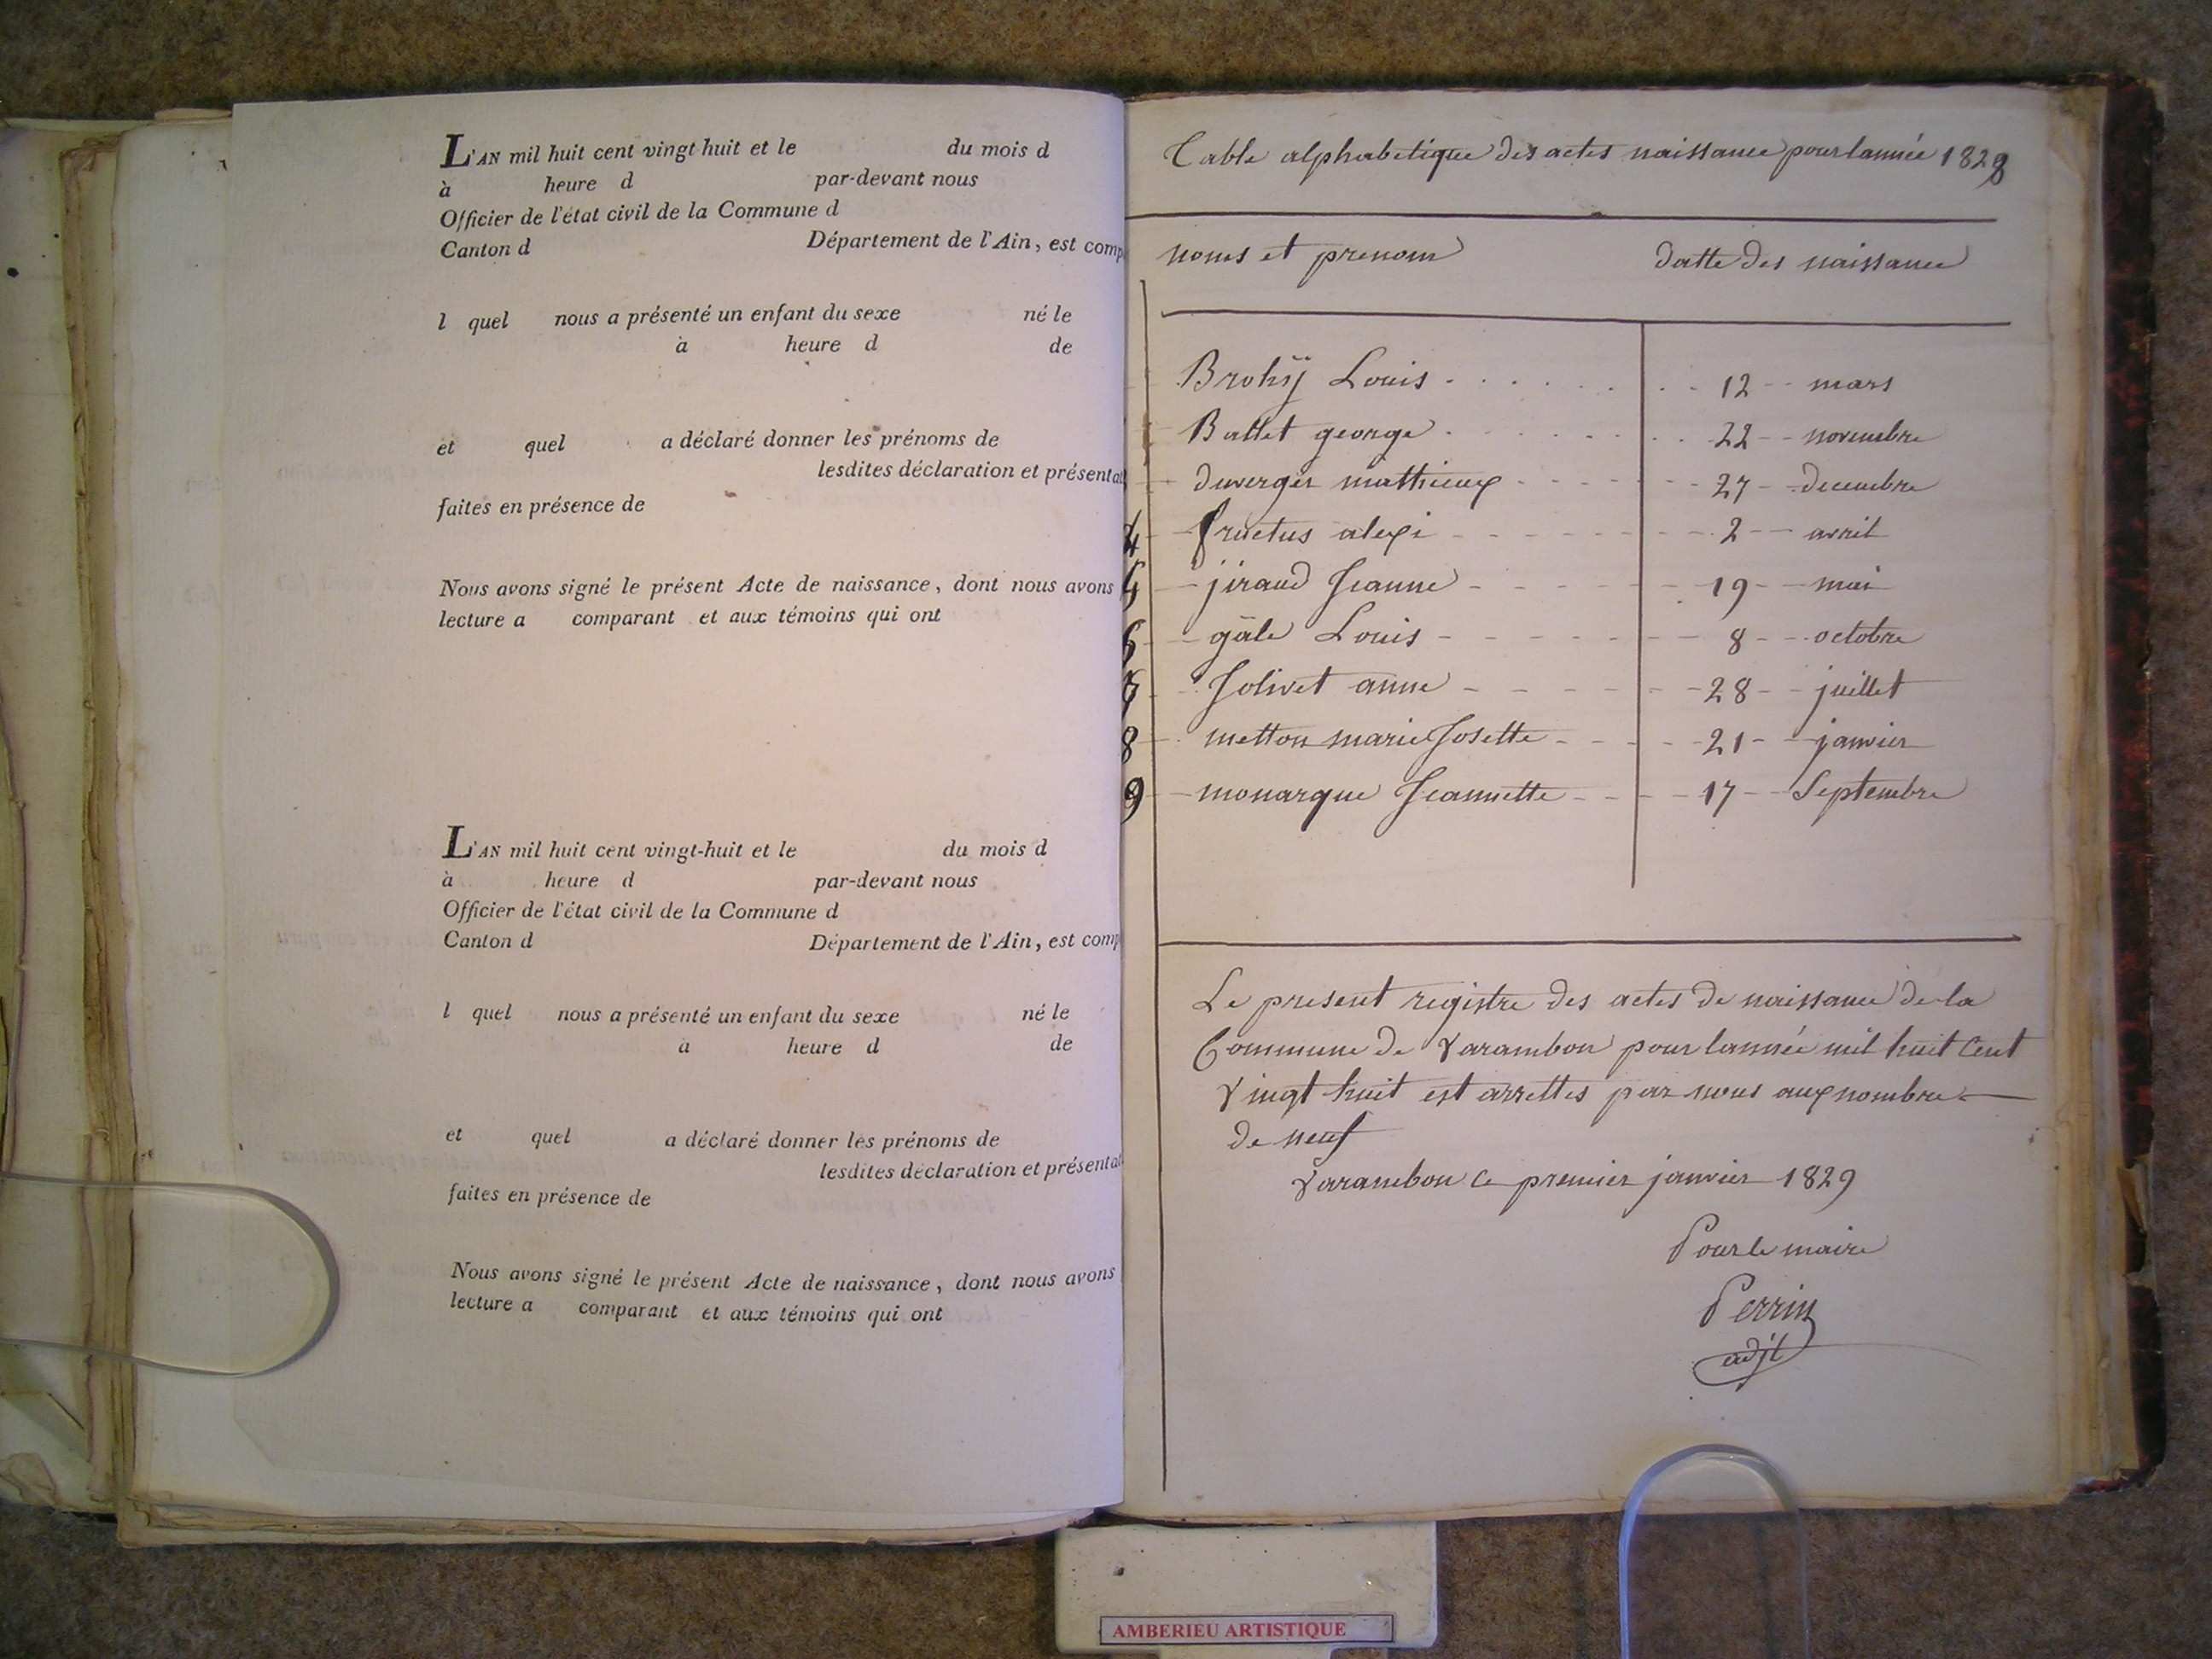 L'AN mil huit cent vingt-huit et le du mois d
à heure d par-devant nous
Officier de l'état civil de la Commune d
Canton d Département de l'Ain, est comp
l quel nous a présenté un enfant du sexe né le
à heure d de
et quel a déclaré donner les prénoms de
lesdites déclaration et présentat
faites en présence de
Nous avons signé le présent Acte de naissance, dont nous avons
lecture a comparant et aux témoins qui ont
L'AN mil huit cent vingt-huit et le du mois d
à heure d par-devant nous
Officier de l'état civil de la Commune d
Canton d Département de l'Ain, est comp
l quel nous a présenté un enfant du sexe né le
à heure d de
et quel a déclaré donner les prénoms de
lesdites déclaration et présentat
faites en présence de
Nous avons signé le présent Acte de naissance, dont nous avons
lecture a comparant et aux témoins qui ont
Table alphabetique des actes naissance pour lannée 1828
noms et prenom datte des naissance
Louis 12 mars
Ballet george 22 novembre
duverger mathieux 27 decembre
4 fructus alexi 2 avril
5 jiraud Jeanne 19 mai
6 gâle Louis 8 octobre
7 Jolivet anne 28 juillet
8 metton marie Josette 21 janvier
9 monarque Jeannette 17 Septembre
Le present registre des actes de naissance de la
Commune de Varambon pour lannée mil huit Cent
Vingt huit est arrettes par nous aux nombre
de neuf
Varambon ce premier janvier 1829
Pour le maire
Perrin
adjt
AMBERIEU ARTISTIQUE